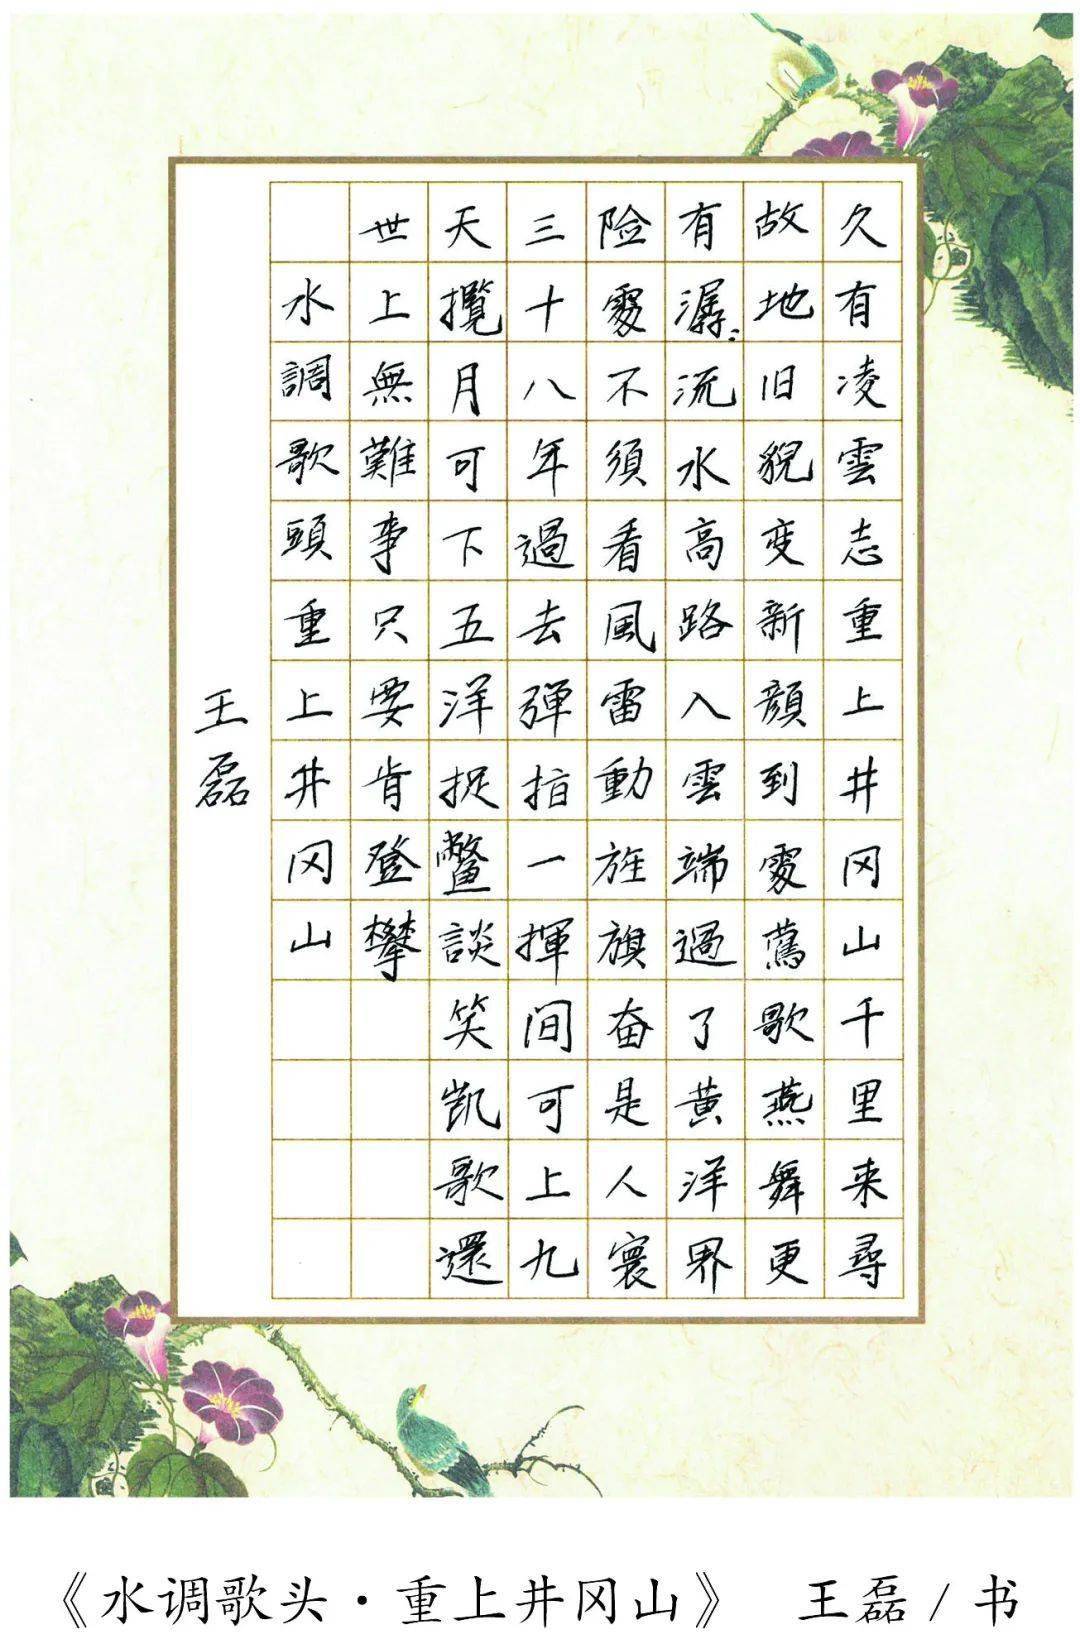 久有凌雲志重上井冈山千里来尋
故地旧貌变新顔到處鶯歌燕舞更
有潺〻流水高路入雲端過了黄洋界
险處不須看風雷動旌旗奋是人寰
三十八年過去弹指一揮间可上九
天攬月可下五洋捉鳖談笑凯歌還
世上無難事只要肯登攀
水調歌頭重上井冈山
王磊
《水调歌头·重上井冈山》 王磊/书